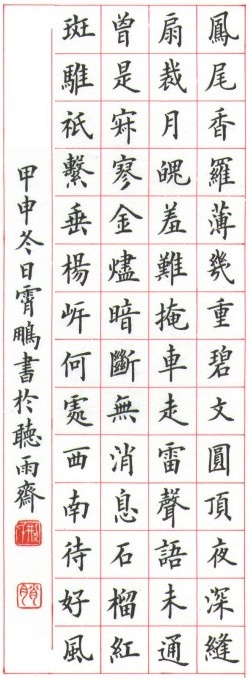 鳳尾香羅薄幾重碧文圓頂夜深縫
扇裁月魄羞難掩車走雷聲語未通
曾是寂寥金燼暗斷無消息石榴紅
斑騅祇繫垂楊岸何處西南待好風
甲申冬日霄鵬書於聽雨齋